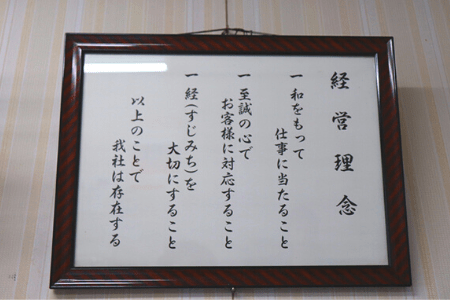 経営理念
一 和をもって
仕事に当たること
一 至誠の心で
お客様に対応すること
一 経(すじみち)を
大切にすること
以上のことで
我社は存在する